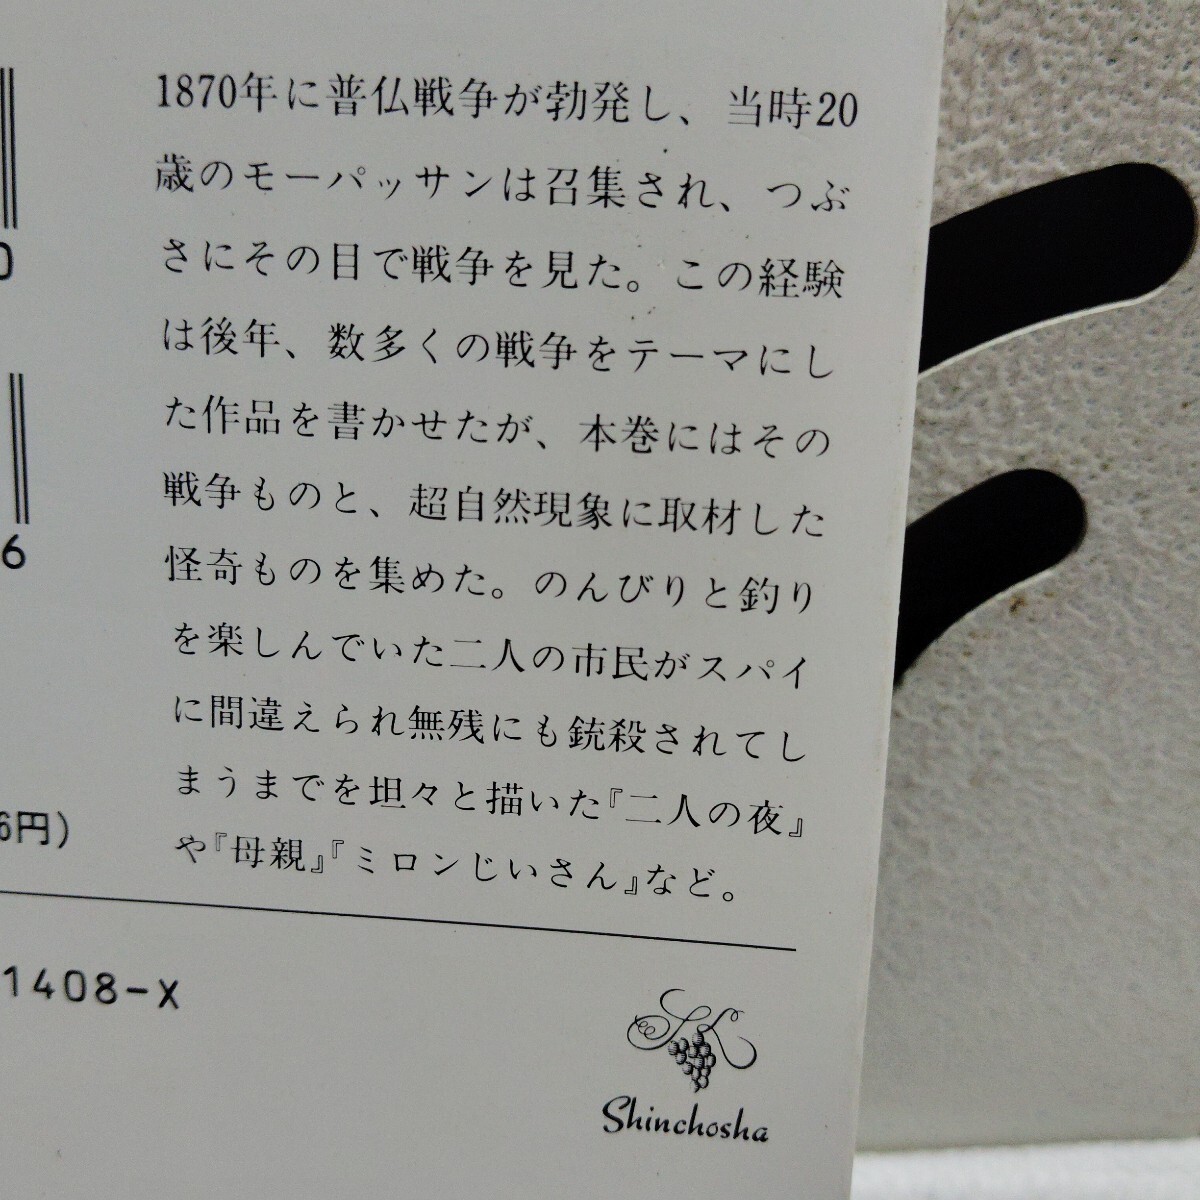 1870年に普仏戦争が勃発し、当時20
歳のモーパッサンは召集され、つぶ
さにその目で戦争を見た。この経験
は後年、数多くの戦争をテーマにし
た作品を書かせたが、本巻にはその
戦争ものと、超自然現象に取材した
怪奇ものを集めた。のんびりと釣り
を楽しんでいた二人の市民がスパイ
に間違えられ無残にも銃殺されてし
まうまでを坦々と描いた『二人の夜』
や『母親』『ミロンじいさん』など。
0
6
6円)
1408-X
SK
Shinchosha